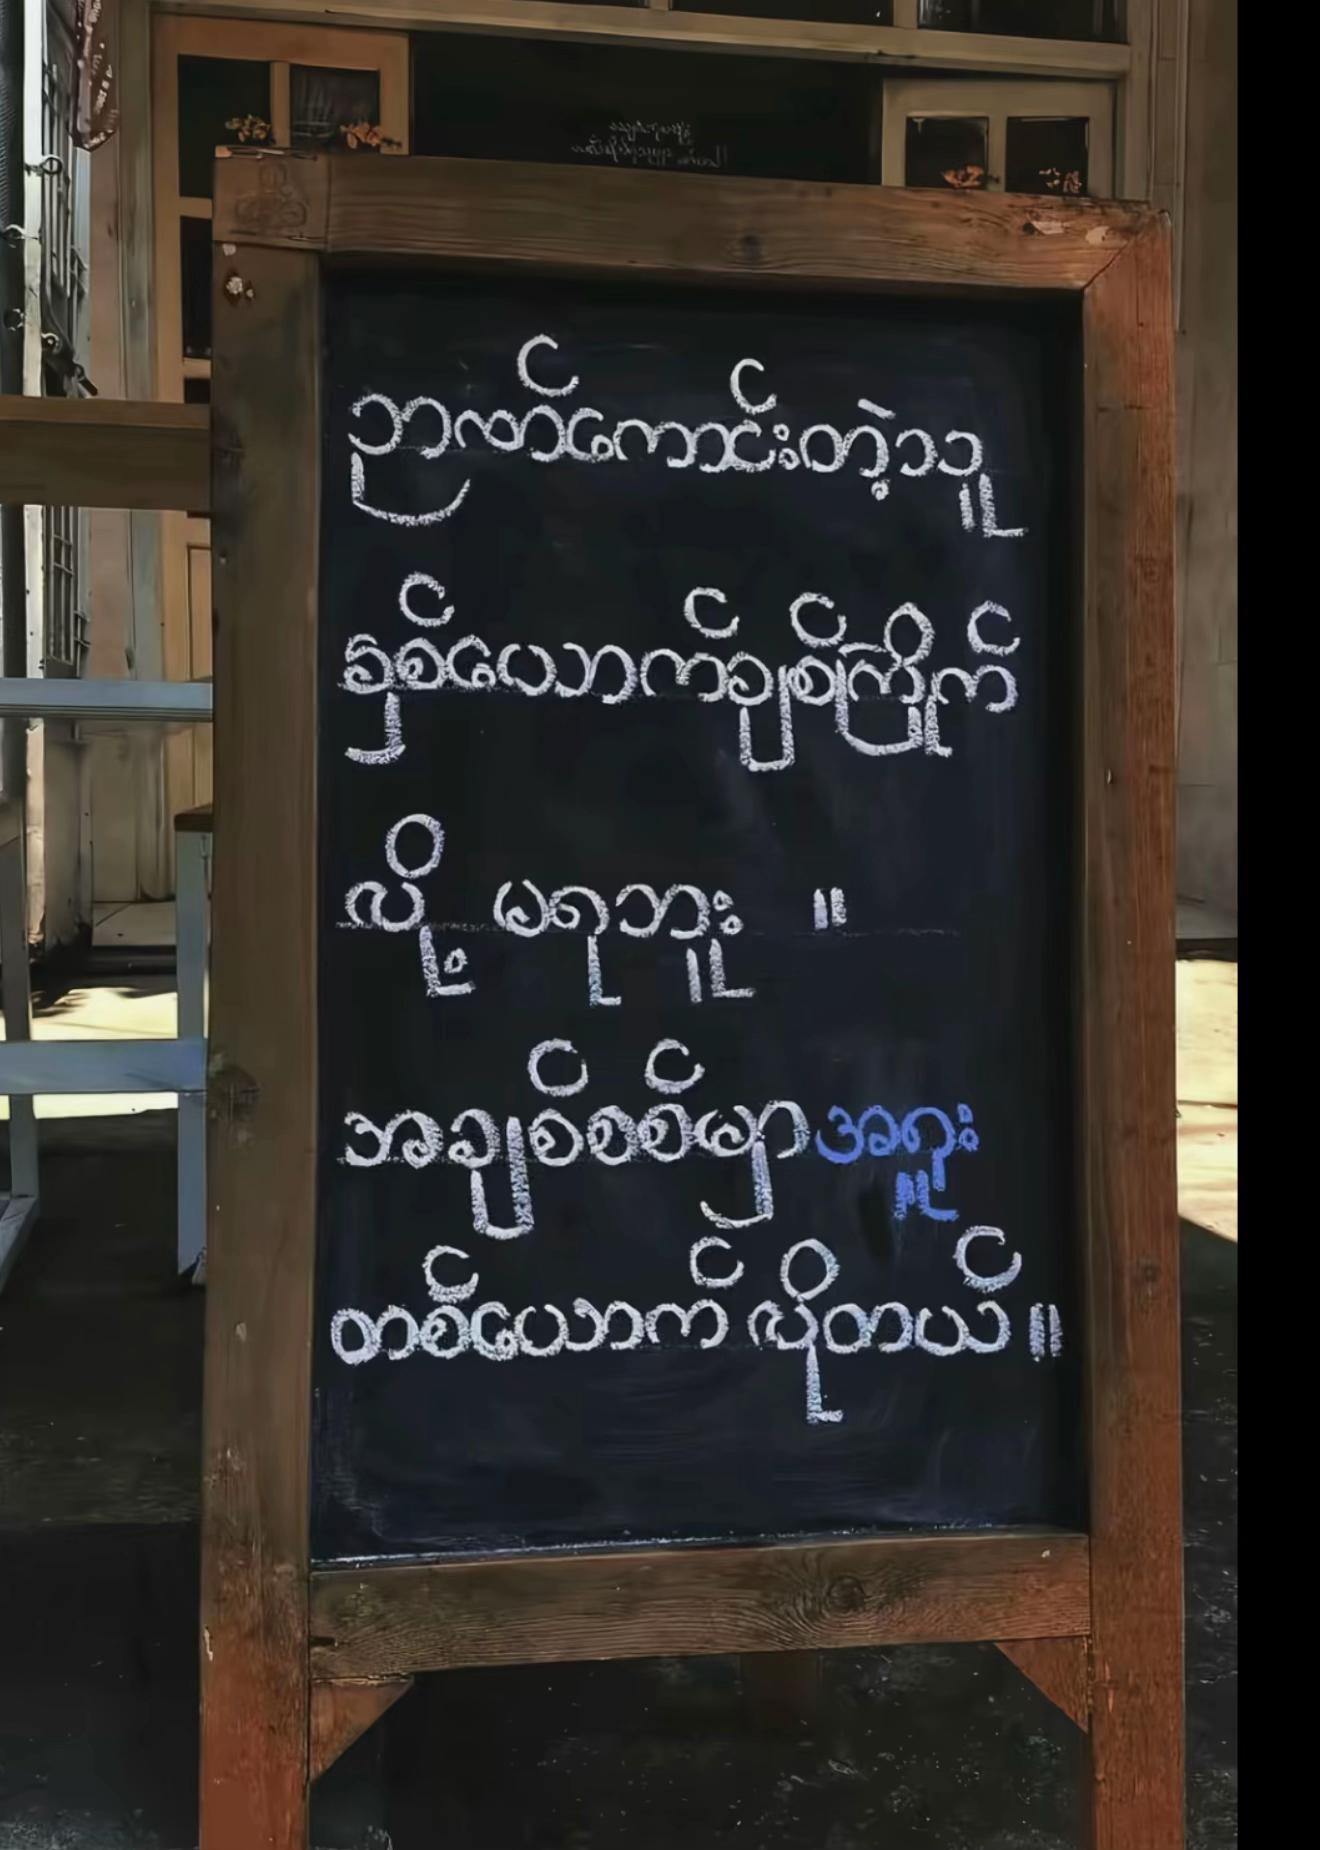 ဉာဏ်ကောင်းတဲ့သူ
နှစ်ယောက်ချစ်ကြိုက်
လို့ မရဘူး ။
အချစ်စစ်မှာအရူး
တစ်ယောက်လိုတယ်။